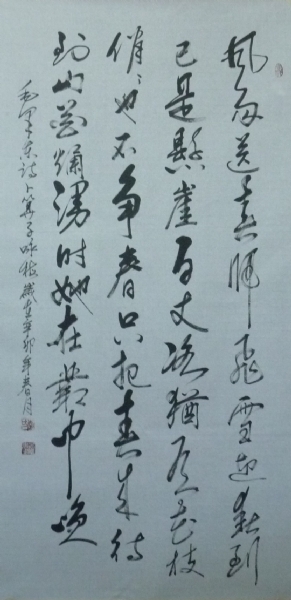 風雨送春归飛雪迎春到
已是懸崖百丈冰犹有花枝
俏〻也不争春只把春来待
到山花爛漫时她在叢中咲
毛泽东诗卜算子咏梅歲在辛卯年春月